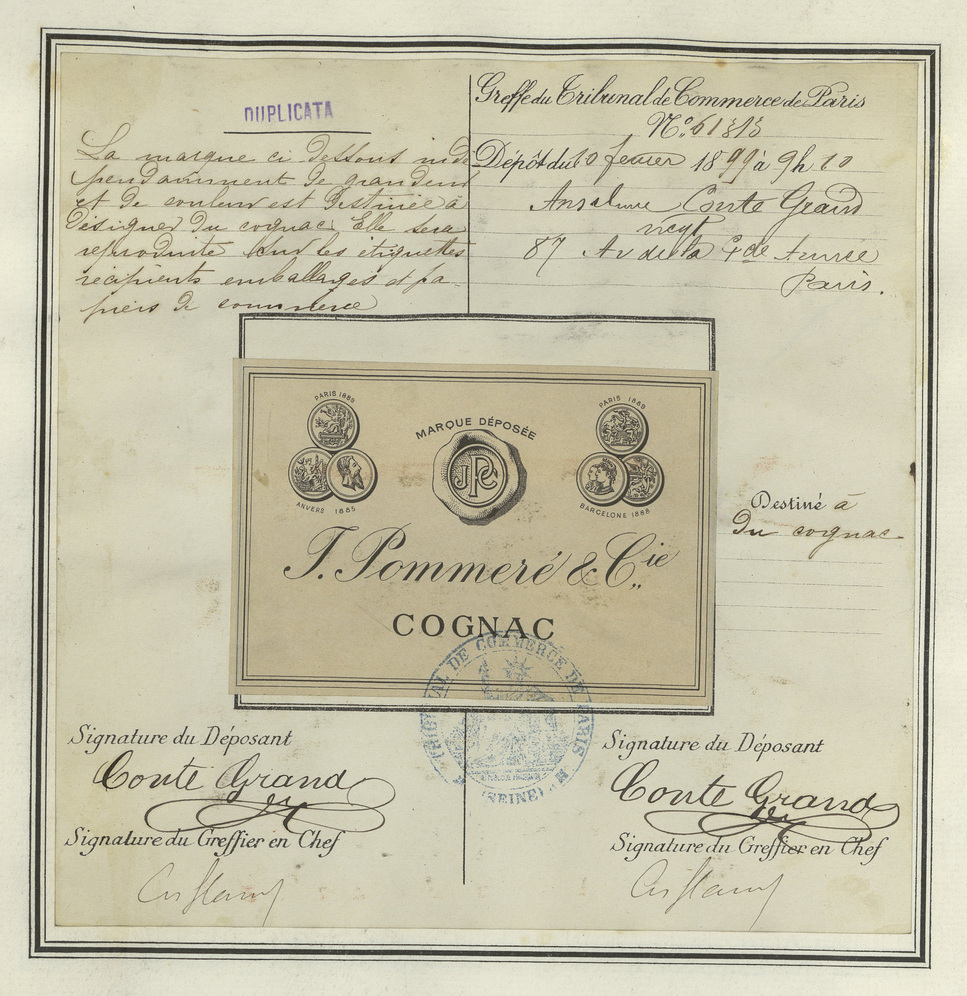 DUPLICATA
La marque ci dessous indé
pendamment de grandeur
et de couleur est destinée à
désigner du cognac Elle sera
reproduite sur les étiquettes
récipients emballages et pa-
piers de commerce
Greffe du Tribunal de Commerce de Paris
N.º 61313
Dépôt du 10 fevrier 1899 à 9h 10
Anselme Conte Grand
negt
87 Av de la Gde Armée
Paris.
PARIS 1889
ANVERS 1885
MARQUE DÉPOSÉE
JPC
PARIS 1889
BARCELONE 1888
J. Pommeré & Cie
COGNAC
TRIBUNAL DE COMMERCE DE PARIS
(SEINE)
Destiné à
du cognac
Signature du Déposant
Conte Grand
Signature du Greffier en Chef
Signature du Déposant
Conte Grand
Signature du Greffier en Chef